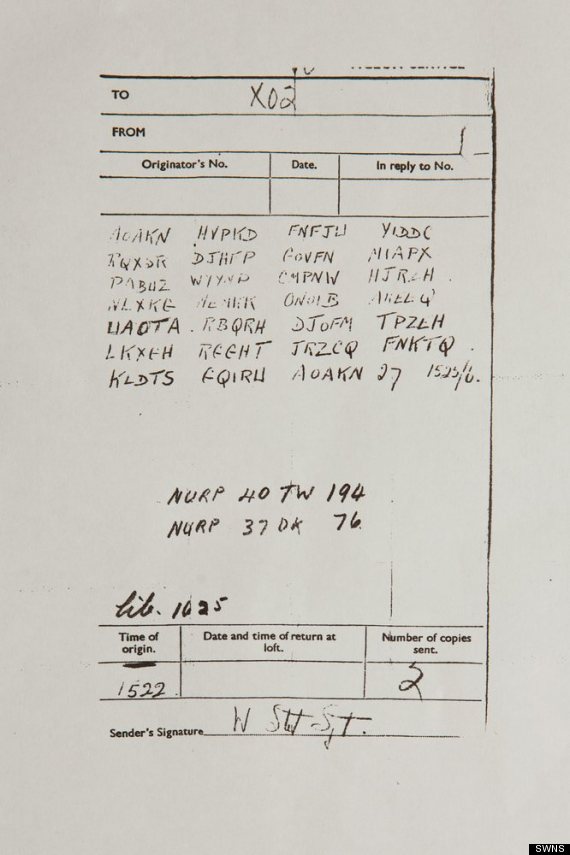 TO X02
FROM 1
Originator's No. Date. In reply to No.
AOAKN HVPKD FNFJU YIDDC
RQXSR DJHFP GOVFN MIAPX
PABUZ WYYNP CMPNW HJRZH
NLXKG MEMKK ONOIB AKEEQ
UAOTA RBQRH DJOFM TPZEH
LKXGH RGGHT JRZCQ FNKTQ
KLDTS GQIRU AOAKN 27 1525/6.
NURP 40 TW 194
NURP 37 DK 76
lib. 1625
Time of origin. Date and time of return at loft. Number of copies sent.
1522 2
Sender's Signature W Stot Sjt.
SWNS